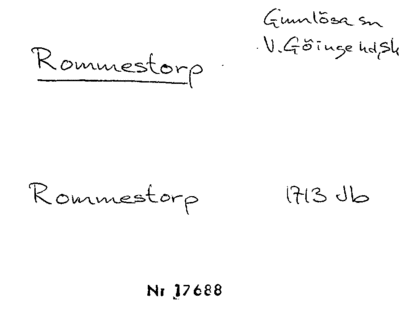 Gumlösa sn
Rommestorp
V. Göinge hd, Sk
Rommestorp 1713 Jb
Nr 17688